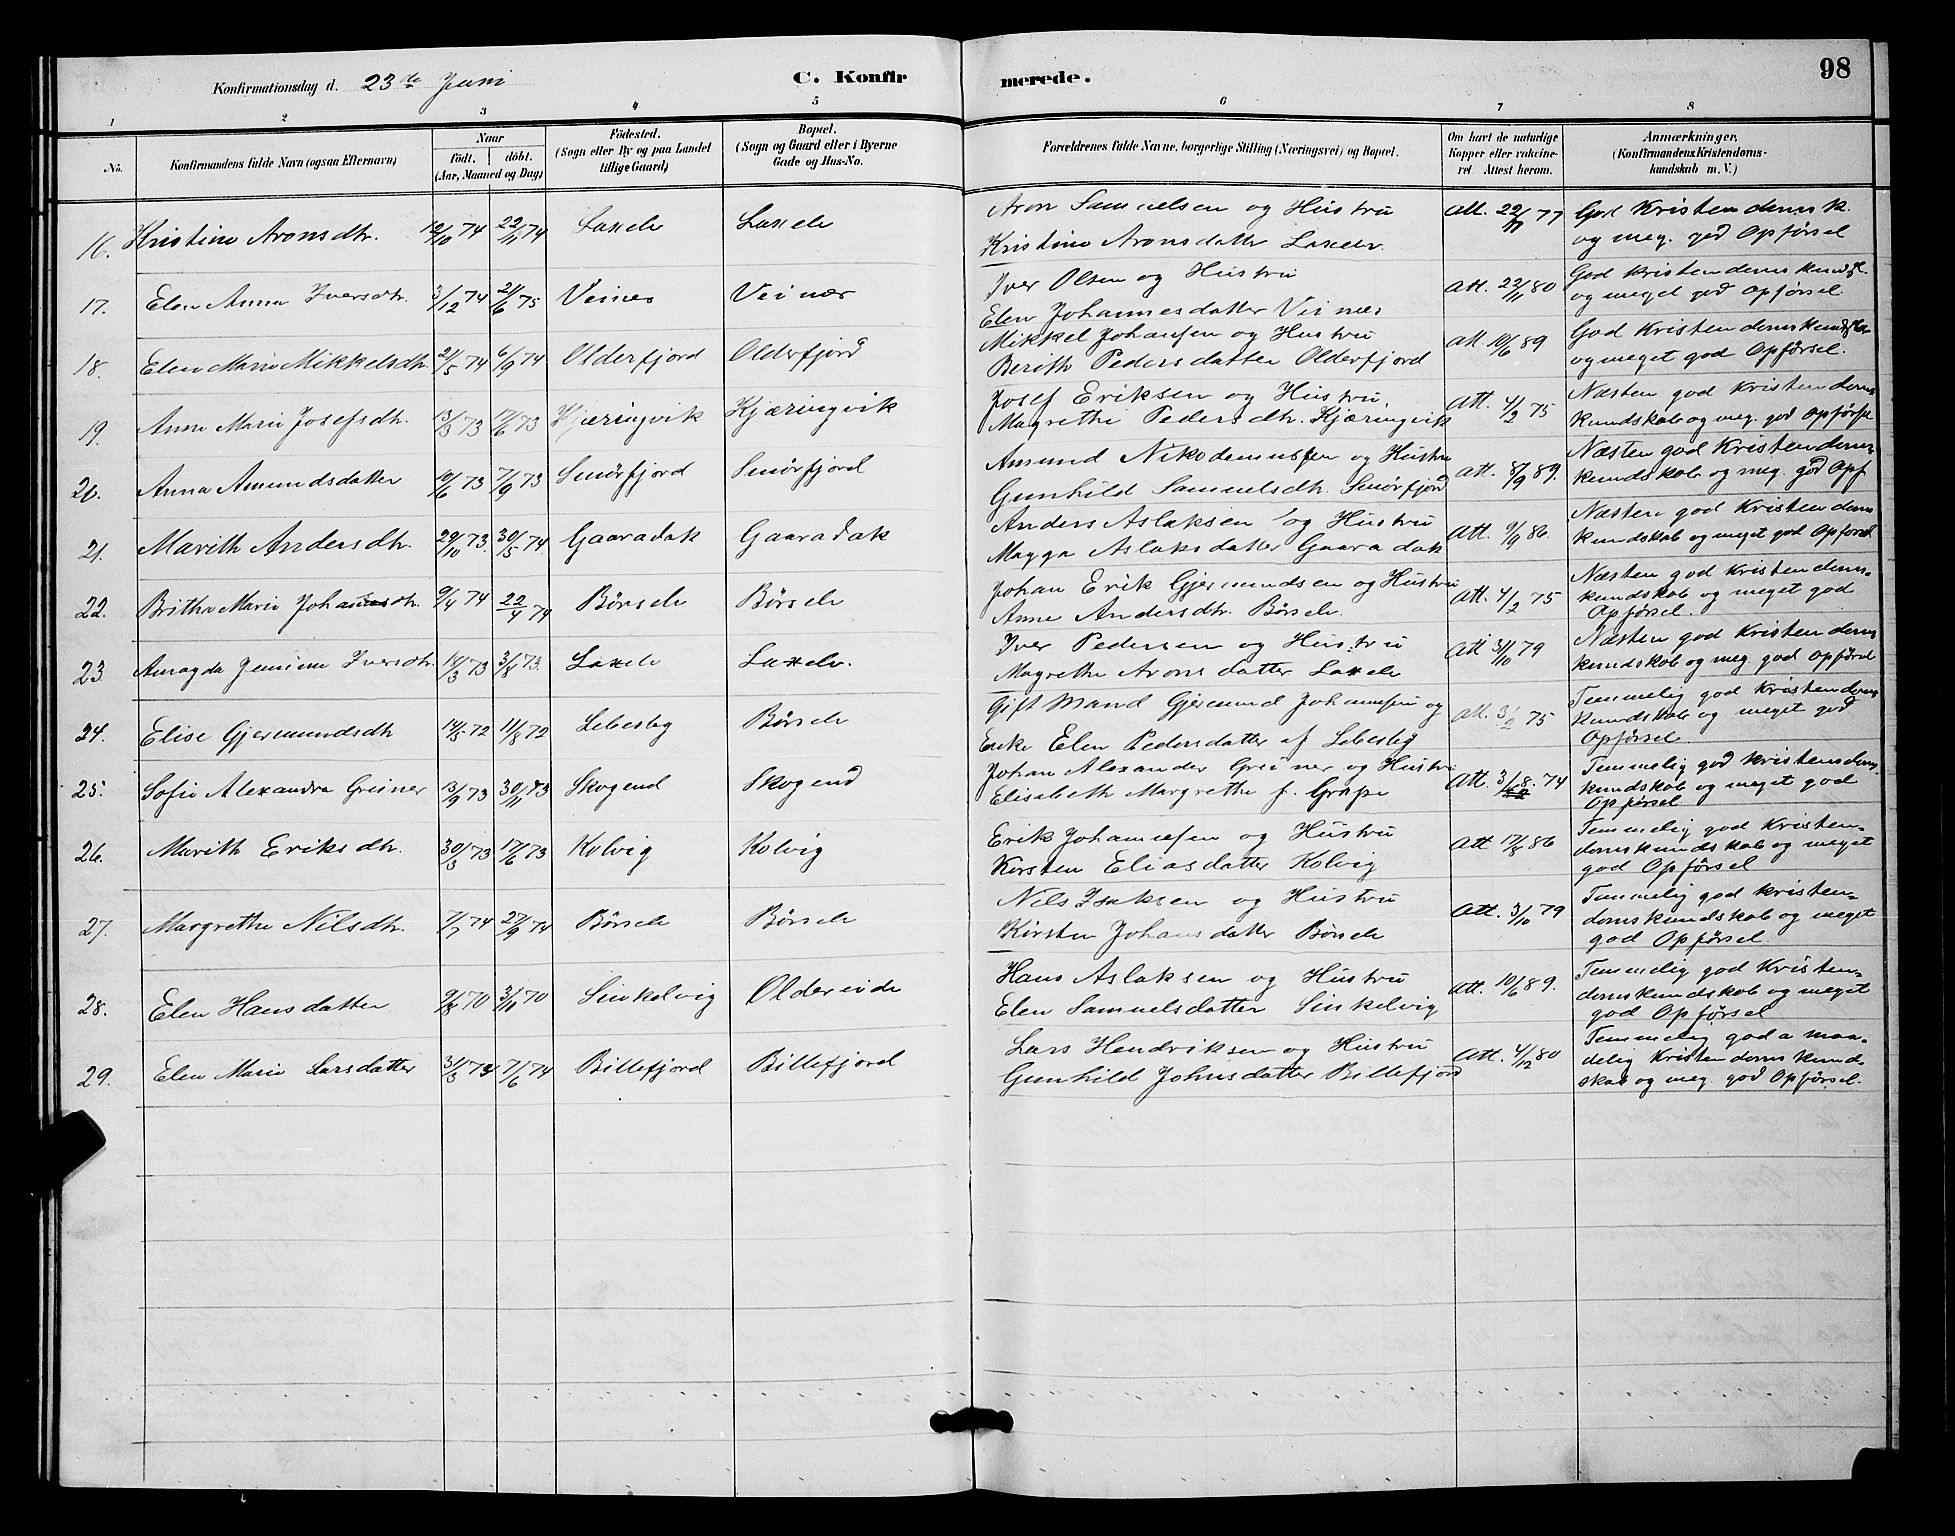 Konfirmationsdag d. 23de Juni
C. Konfirmerede.
98
1 2 3 4 5 6 7 8
No.
Konfirmandens fulde Navn (ogsaa Efternavn)
Naar
født. døbt.
(Aar, Maaned og Dag)
Födested.
(Sogn eller By og paa Landet
tillige Gaard)
Bopæl.
(Sogn og Gaard eller i Byerne
Gade og Hus-No.
Forældrenes fulde Navne, borgerlige Stilling (Næringsvei) og Bopæl.
Om havt de naturlige
Kopper eller vakcine-
ret Attest herom.
Anmærkninger.
(Konfirmandens Kristendoms-
kundskab m. V.)
16. Kristine Aronsdtr. 12/10 74 22/11 74 Laxelv Laxelv Aron Samuelsen og Hustru Att. 22/11 77 God Kristendomsk.
Kristine Aronsdatter Laxelv. og meg. god Opførsel
17. Elen Anna Iversdtr. 3/12 74 21/6 75 Veines Veinæs Iver Olsen og Hustru Att. 22/11 80 God Kristendomskundsk.
Elen Johannesdatter Veinæs og meget god Opførsel
18. Elen Marie Mikkelsdtr. 21/5 74 6/9 74 Olderfjord Olderfjord Mikkel Johansen og Hustru Att. 10/6 89 God Kristendomskundskab
Berith Pedersdatter Olderfjord og meget god Opførsel.
19. Anne Marie Josefsdtr. 13/3 73 17/6 73 Kjæringvik Kjæringvik Josef Eriksen og Hustru, Att. 4/2 75 Næsten god Kristendoms-
Magrethe Pedersdtr. Kjæringvik kundskab og meg. god Opførsel
20. Anna Amundsdatter 10/6 73 7/9 73 Smørfjord Smörfjord Amund Nikodemussen og Hustru Att. 8/9 89. Næsten god Kristendoms-
Gunhild Samuelsdtr. Smörfjord kundskab og meg. god Opf
21. Marith Andersdtr. 29/10 73. 30/5 74 Gaaradak Gaaradak Anders Aslaksen og Hustru Att. 9/9 86. Næsten god Kristendoms
Magga Aslaksdatter Gaaradak kundskab og meget god Opførsel
22. Britha Marie Johansdtr. 9/4 74 22/4 74 Børselv Børselv Johan Erik Gjermundsen og Hustru Att. 4/2 75 Næsten god Kristendoms-
Anne Andersdtr. Børselv. kundskab og meget god
Opførsel.
23 Amagda Jensine Iversdtr. 14/3 73 3/8 73. Laxelv Laxelv. Iver Pedersen og Hustru Att 3/10 79 Næsten god Kristendoms
Magrethe Aronsdatter Laxelv kundskab og meg. god Opførsel
24. Elise Gjermundsdtr 14/5 72 11/8 72 Lebesby Børselv Gift Mand Gjermund Johannsen og Att. 3/2 75 Temmelig god Kristendoms
Enke Elen Pedersdatter af Lebesby kundskab og meget god
Opførsel
25. Sofie Alexandra Greiner 13/9 73 30/11 73 Skogend Skogend Johan Alexander Greiner og Hustru Att. 3/8. 74 Temmelig god Kristendoms-
Elisabeth Margrethe f. Grape kundskab og meget god
Opførsel
26. Marith Eriksdtr. 30/3 73 17/6 73 Kolvig Kolvig Erik Johannesen og Hustru Att 17/8 86 Temmelig god Kristen-
Kirsten Eliasdatter Kolvig domskundskab og meget
god Opførsel
27. Margrethe Nilsdtr. 7/7 74 27/9 74 Børselv Børselv Nils Isaksen og Hustru Att. 3/10 79 Temmelig god Kristen-
Kirsten Johansdatter Børselv domskundskab og meget
god Opførsel.
28. Elen Hansdatter 9/8 70 3/10 70 Sinkelvig Oldereide Hans Aslaksen og Hustru Att. 10/6 89. Temmelig god Kristen-
Elen Samuelsdatter Sinkelvig domskundskab og meget
god Opførsel
29. Elen Marie Larsdatter 31/3 73 7/6 74 Billefjord Billefjord Lars Hendriksen og Hustru Att. 4/12 80 Temmelig god a maa-
Gunhild Johnsdatter Billefjord delig Kristendomskund-
skab og meg. god Opførsel.